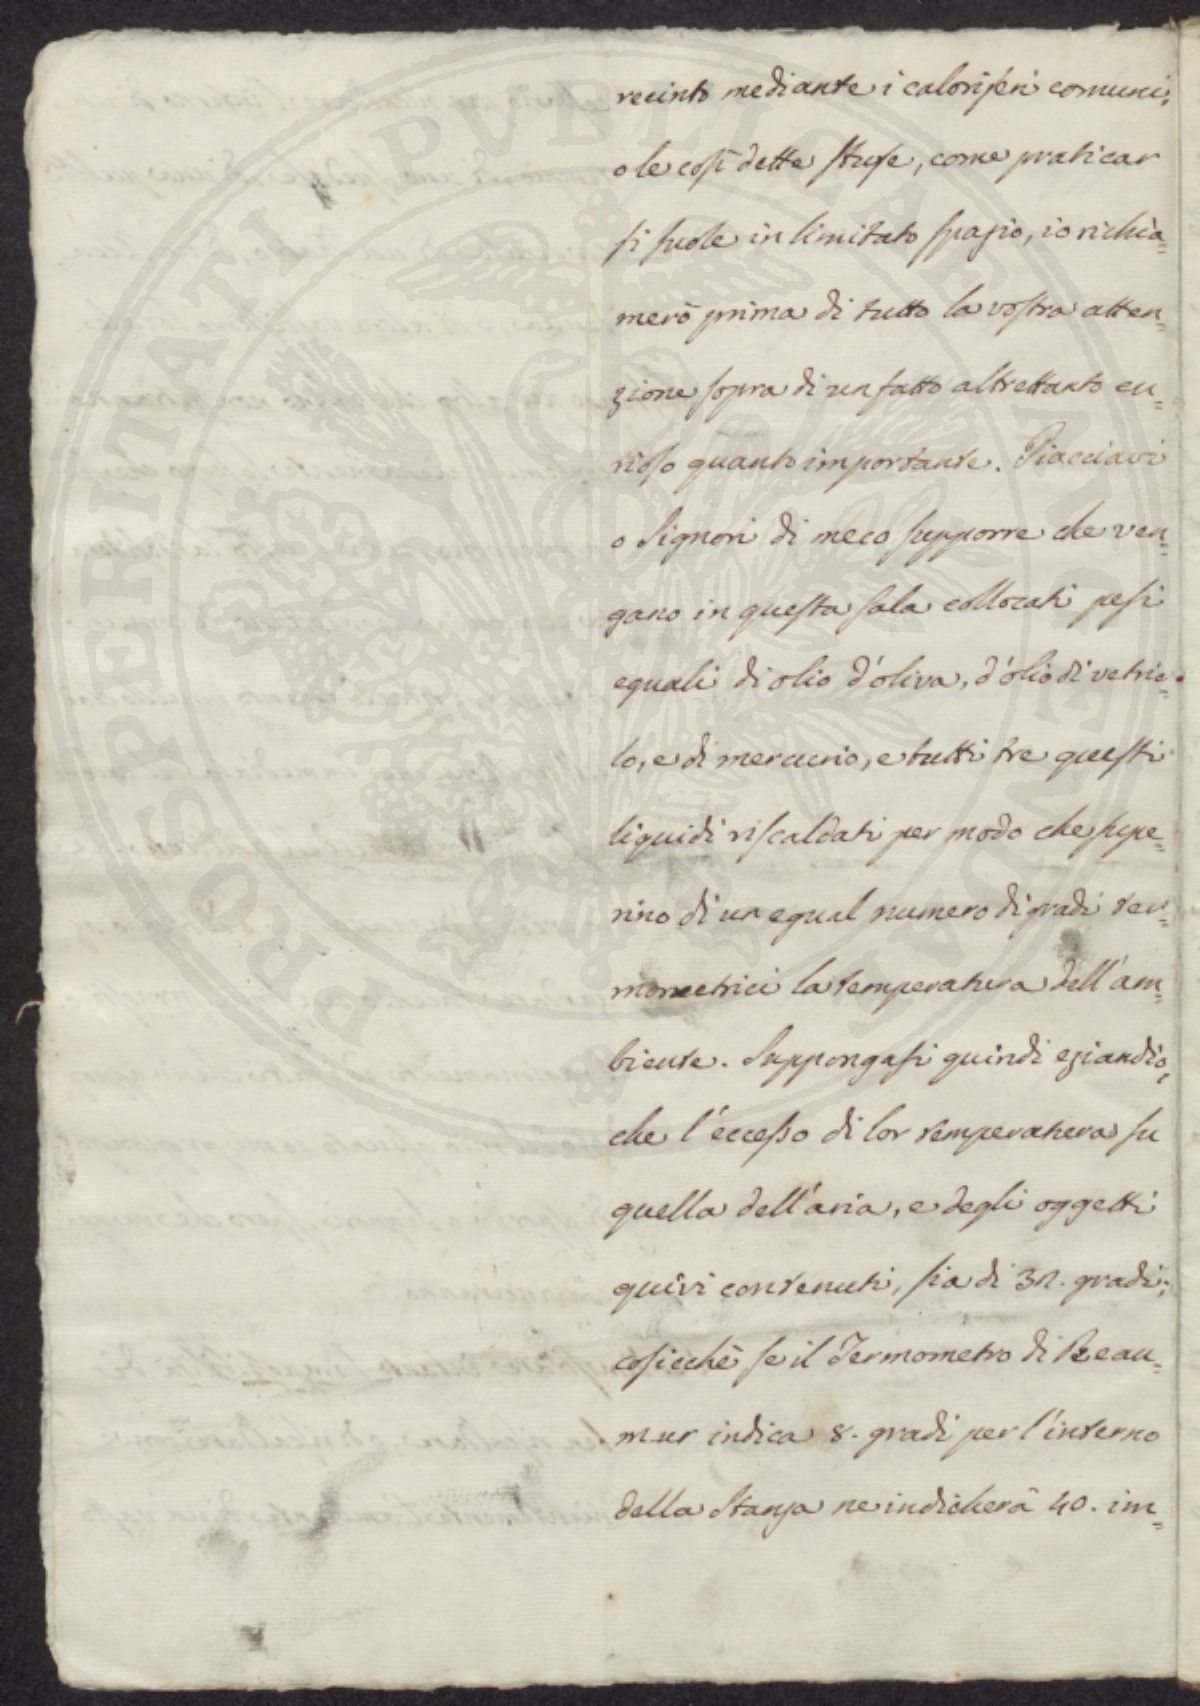 recinto mediante i caloriferi comuni,
o le così dette stufe, come praticar
si suole in limitato spazio, io richia=
merò prima di tutto la vostra atten=
zione sopra di un fatto altrettanto cu=
rioso quanto importante. Piacciavi
o Signori di meco supporre che ven=
gano in questa sala collocati pesi
eguali di olio d'oliva, d'olio di vetrio=
lo, e di mercurio, e tutti tre questi
liquidi riscaldati per modo che supe=
rino di un egual numero di gradi ter=
mometrici la temperatura dell'am=
biente. Suppongasi quindi eziandio,
che l'eccesso di lor temperatura su
quella dell'aria, e degli oggetti
quivi contenuti, sia di 32. gradi;
cosicchè se il Termometro di Reau=
mur indica 8. gradi per l'interno
della Stanza ne indicherà 40. im=
PROSPERITATI PUBLICAE AUGENDAE